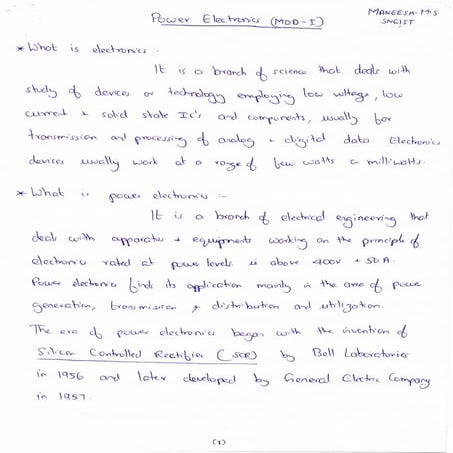 Power Electronics (MOD-I)
MANEESH.M.S
SNGIST
* What is electronics :-
It is a branch of science that deals with
study of devices or technology employing low voltage, low
current + solid state IC's and components, usually for
transmission and processing of analog + digital data. Electronics
devices usually work at a range of few watts or milliwatts.
* What is power electronics :-
It is a branch of electrical engineering that
deals with apparatus + equipments working on the principle of
electronics rated at power levels ie above 400V + 50A.
Power electronics finds its application mainly in the area of power
generation, transmission + distribution and utilization.
The era of power electronics began with the invention of
Silicon Controlled Rectifier (SCR) by Bell Laboratories
in 1956 and later developed by General Electric Company
in 1957.
(1)